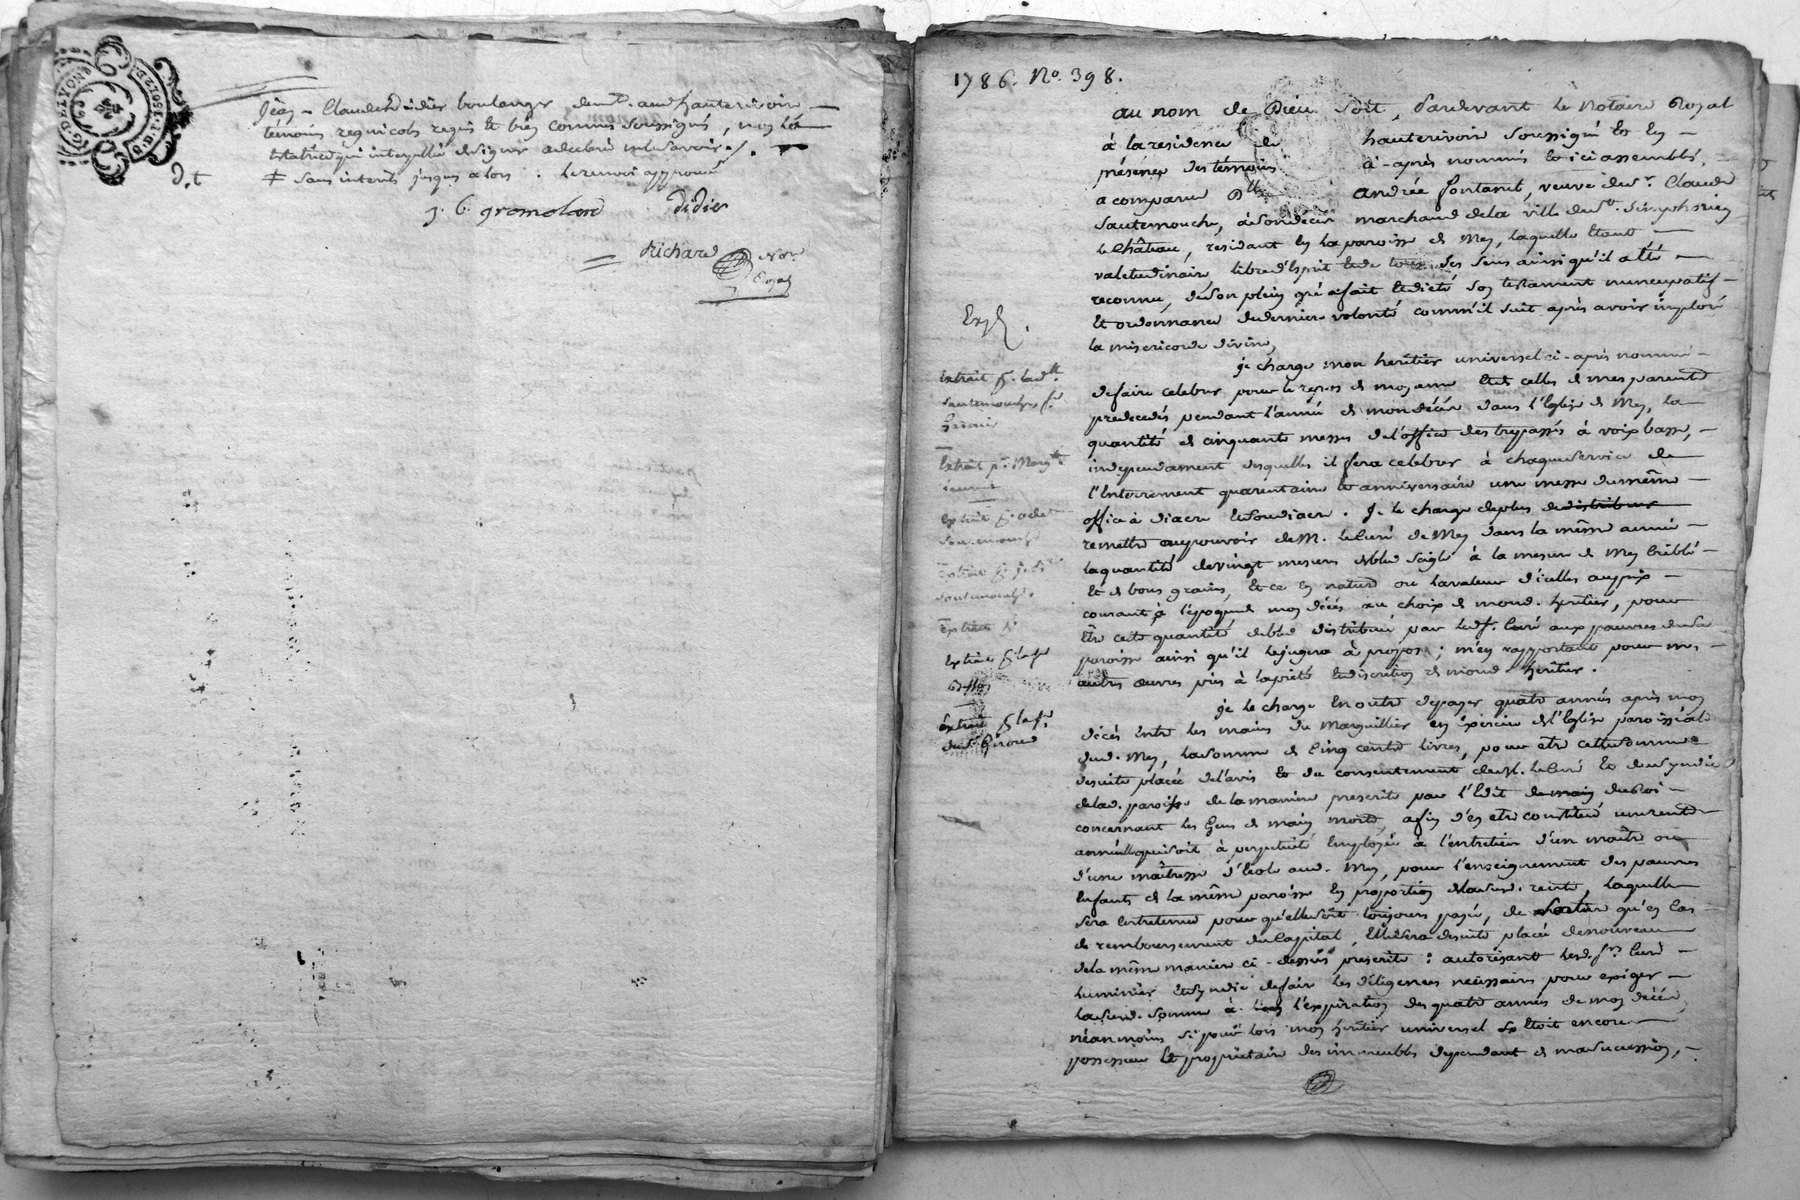 G. DE LYON
Jean-Claude Didier boulanger demt. aud. hauterivoire
témoins regnicols requis et bien connus soussignés, non la
testatrice qui interpellée de signer a declaré ne le savoir ./.
sans interets jusques alors . le renvoi approuvé
D.t
j. G. gromoland Didier
Richard Nore
Royal
1786. No. 398.
au nom de Dieu soit, Pardevant le Notaire Royal
à la residence de hauterivoire soussigné et en
présence des témoins ci-après nommés et ici assemblés,
a comparue Dlle andrée fontanet, veuve du Sr. Claude
Sautemouche, à son décès marchand de la ville de St. Simphorien
le Château, residant en la paroisse de Mey, laquelle étant
valetudinaire libre d'esprit et de tous ses sens ainsi qu'il a été
reconnu, de son plein gré a fait et dicté son testament nuncupatif
et ordonnance de derniere volonté comm'il suit après avoir imploré
la misericorde divine,
Exp.
je charge mon heritier universel ci-après nommé
de faire celebrer pour le repos de mon ame et de celles de mes parents
predecedés pendant l'année de mon décès dans l'Eglise de Mey, la
quantité de cinquante messes de l'office des trepassés à voix basse,
independament desquelles il fera celebrer à chaque service de
l'Enterrement quarentaine et anniversaire une messe du même
office à diacre et soudiacre. Je le charge de plus de distribuer
remettre au pouvoir de M. le Curé de Mey dans la même année
la quantité de vingt mesures de bled seigle à la mesure de Mey criblé
et de bons grains, et ce en nature ou la valeur d'icelles au prix
courant à l'epoque de mon décès au choix de mond. heritier, pour
être cette quantité de bled distribuée par led. Sr. Curé aux pauvres de sa
paroisse ainsi qu'il le jugera à propos; m'en rapportant pour mes
autres œuvres pies à la pieté et discretion de mond. heritier.
je le charge en outre de payer quatre années après mon
décès entre les mains du Marguillier en exercice de l'Eglise paroissiale
dud. Mey, la somme de Cinq cents livres, pour être cette somme
de suite placée de l'avis et du consentement de M. le Curé et du syndic
de lad. paroisse de la maniere prescrite par l'Edit de main du Roi
concernant les Gens de main morte, afin d'en etre constitué une rente
annuelle qui soit à perpetuité employée à l'entretien d'un maître ou
d'une maîtresse d'école aud. Mey, pour l'enseignement des pauvres
enfants de la même paroisse en proportion de lasusd. rente, laquelle
sera entretenue pour qu'elle soit toujours payée, de sorte qu'en cas
de remboursement du Capital, il sera de suite placé de nouveau
de la même maniere ci-dessus prescrite : autorisant lesd. Srs. Curé
luminier et syndic de faire les diligences necessaires pour exiger
lasusd. somme à l'expiration des quatre années de mon décès,
néanmoins si pour lors mon heritier universel étoit encore
possesseur et proprietaire des immeubles dependant de ma succession,
extrait p. lad. Dlle
Sautemouche
extrait pr. Marg.te
extrait
extrait p.
extrait p.
extrait p. le sr
extrait p. le sr.